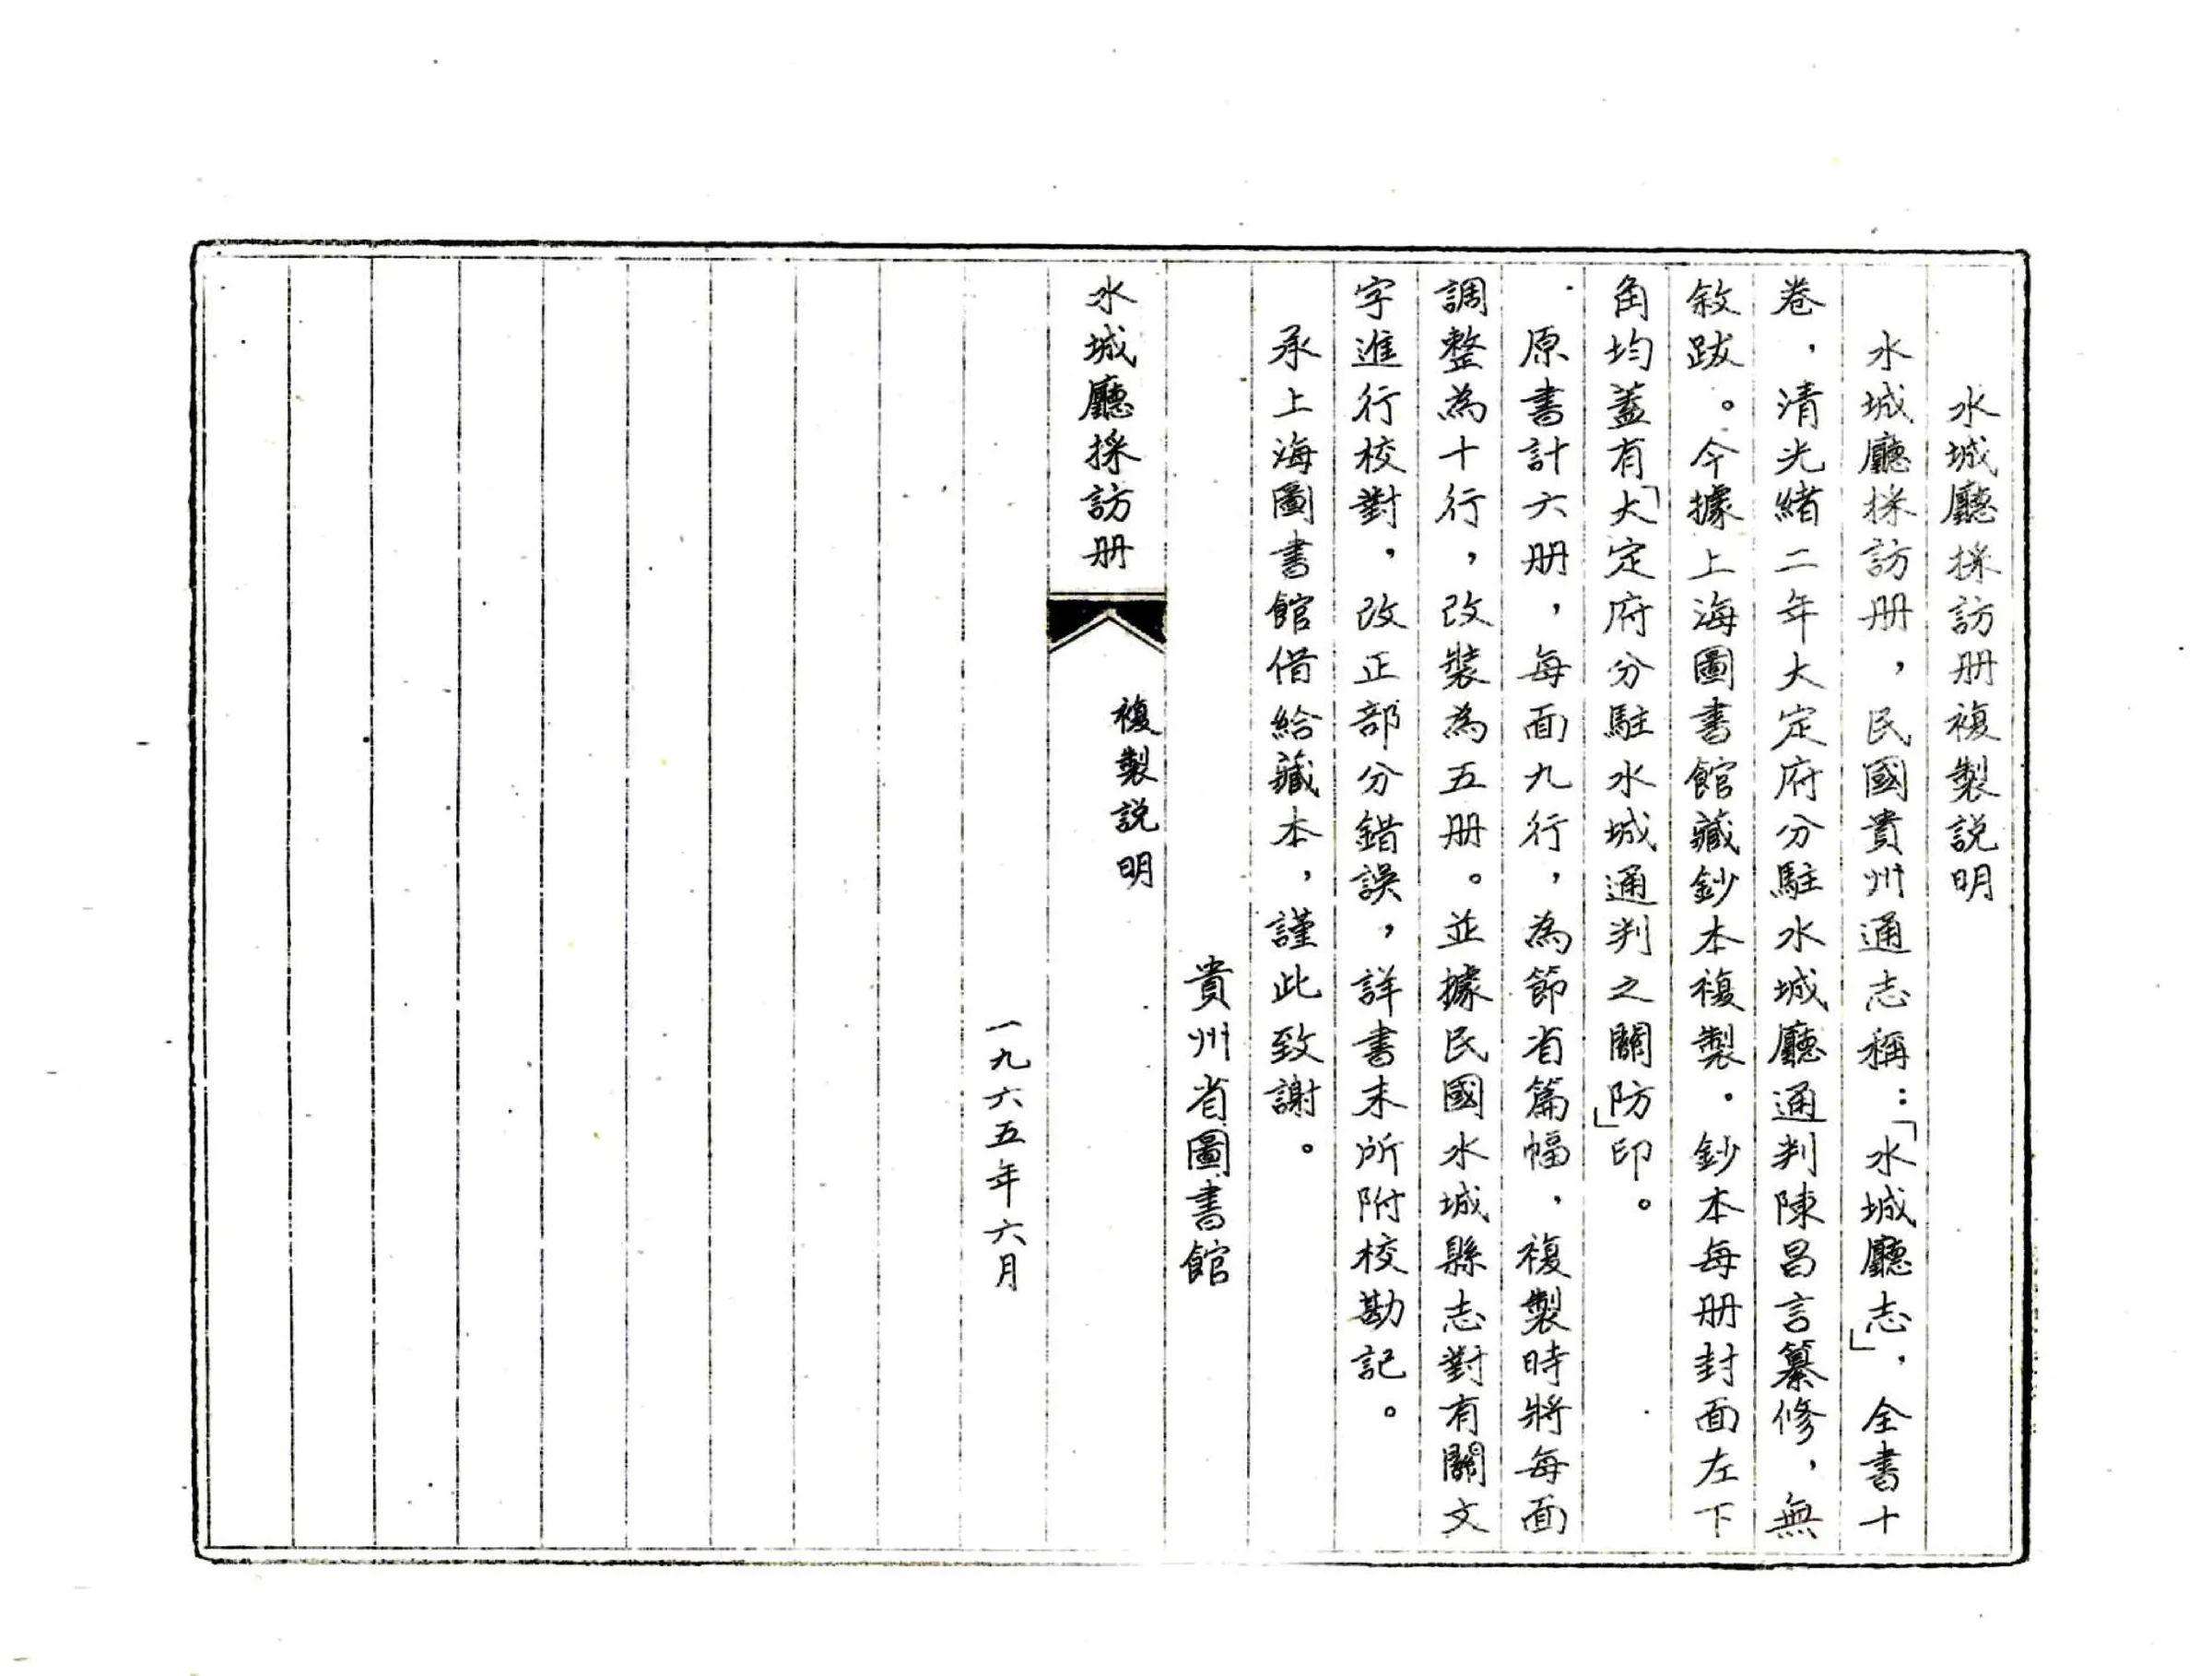 水城廳採訪册複製説明
水城廳採訪册，民國貴州通志稱：「水城廳志」，全書十
卷，清光緒二年大定府分駐水城廳通判陳昌言纂修，無
敘跋。今據上海圖書館藏鈔本複製。鈔本每册封面左下
角均蓋有「大定府分駐水城通判之關防」印。
原書計六册，每面九行，為節省篇幅，複製時將每面
調整為十行，改裝為五册。並據民國水城縣志對有關文
字進行校對，改正部分錯誤，詳書末所附校勘記。
承上海圖書館借給藏本，謹此致謝。
貴州省圖書館
水城廳採訪册
複製説明
一九六五年六月